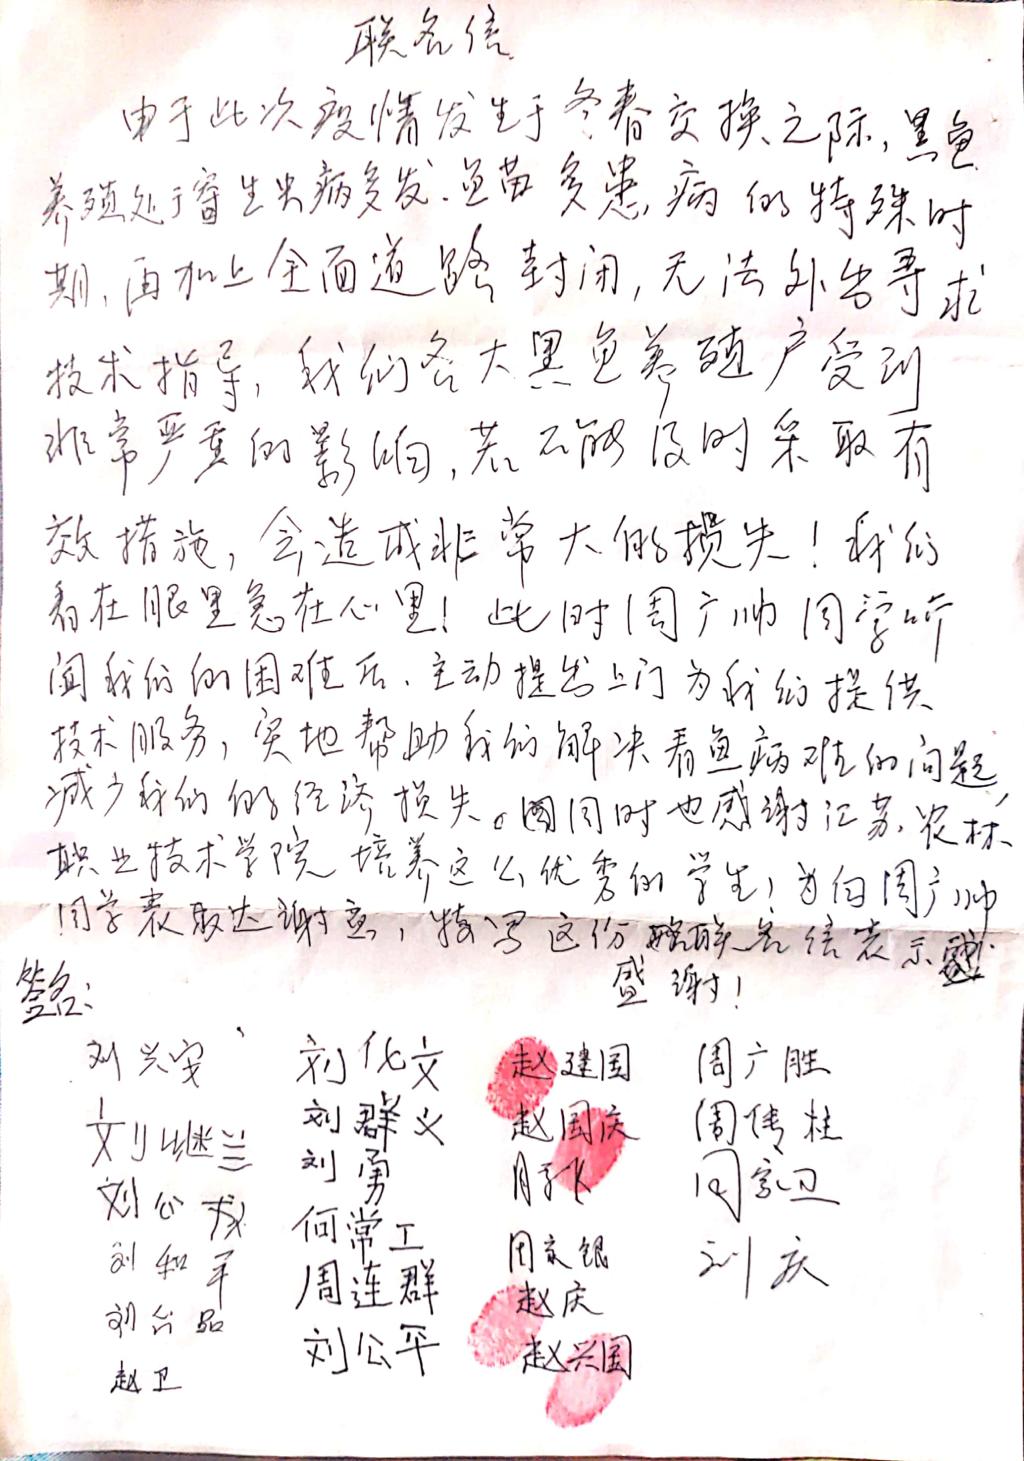 联名信
由于此次疫情发生于冬春交换之际，黑鱼
养殖处于寄生虫病多发、鱼苗多患病的特殊时
期，再加上全面道路封闭，无法外出寻求
技术指导，我们各大黑鱼养殖户受到
非常严重的影响，若不能及时采取有
效措施，会造成非常大的损失！我们
看在眼里急在心里！此时周广帅同学听
闻我们的困难后、主动提出上门为我们提供
技术服务，实地帮助我们解决看鱼病难的问题，
减少我们的经济损失。同时也感谢江苏农林
职业技术学院培养这么优秀的学生，为向周广帅
同学表达谢意，特写这份联名信表示
感谢！
签名：
刘兴安 刘化文 赵建国 周广胜
刘继兰 刘群义 赵国庆 周传柱
刘公成 刘勇 周家卫
刘和平 何常工 周家银 刘庆
刘台品 周连群 赵庆
赵卫 刘公平 赵兴国